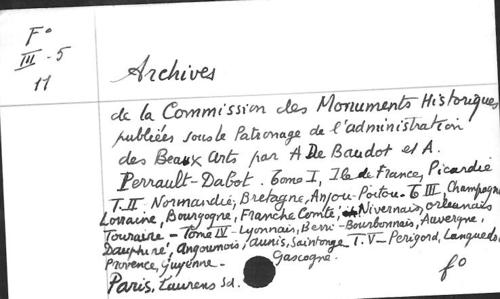 F°
III - 5
11
Archives
de la Commission des Monuments Historiques
publiées sous le Patronage de l'administration
des Beaux Arts par A De Baudot et A.
Perrault-Dabot. Tome I, Ile de France, Picardie
T. II Normandie, Bretagne, Anjou-Poitou - T III, Champagne
Lorraine, Bourgogne, Franche Comté, Nivernais, orléanais
Touraine - Tome IV - Lyonnais, Berri - Bourbonnais, Auvergne,
Dauphiné, Angoumois, Aunis, Saintonge T. V - Périgord, Langued.
Provence, Guyenne - Gascogne.
Paris, Laurens sd. f°